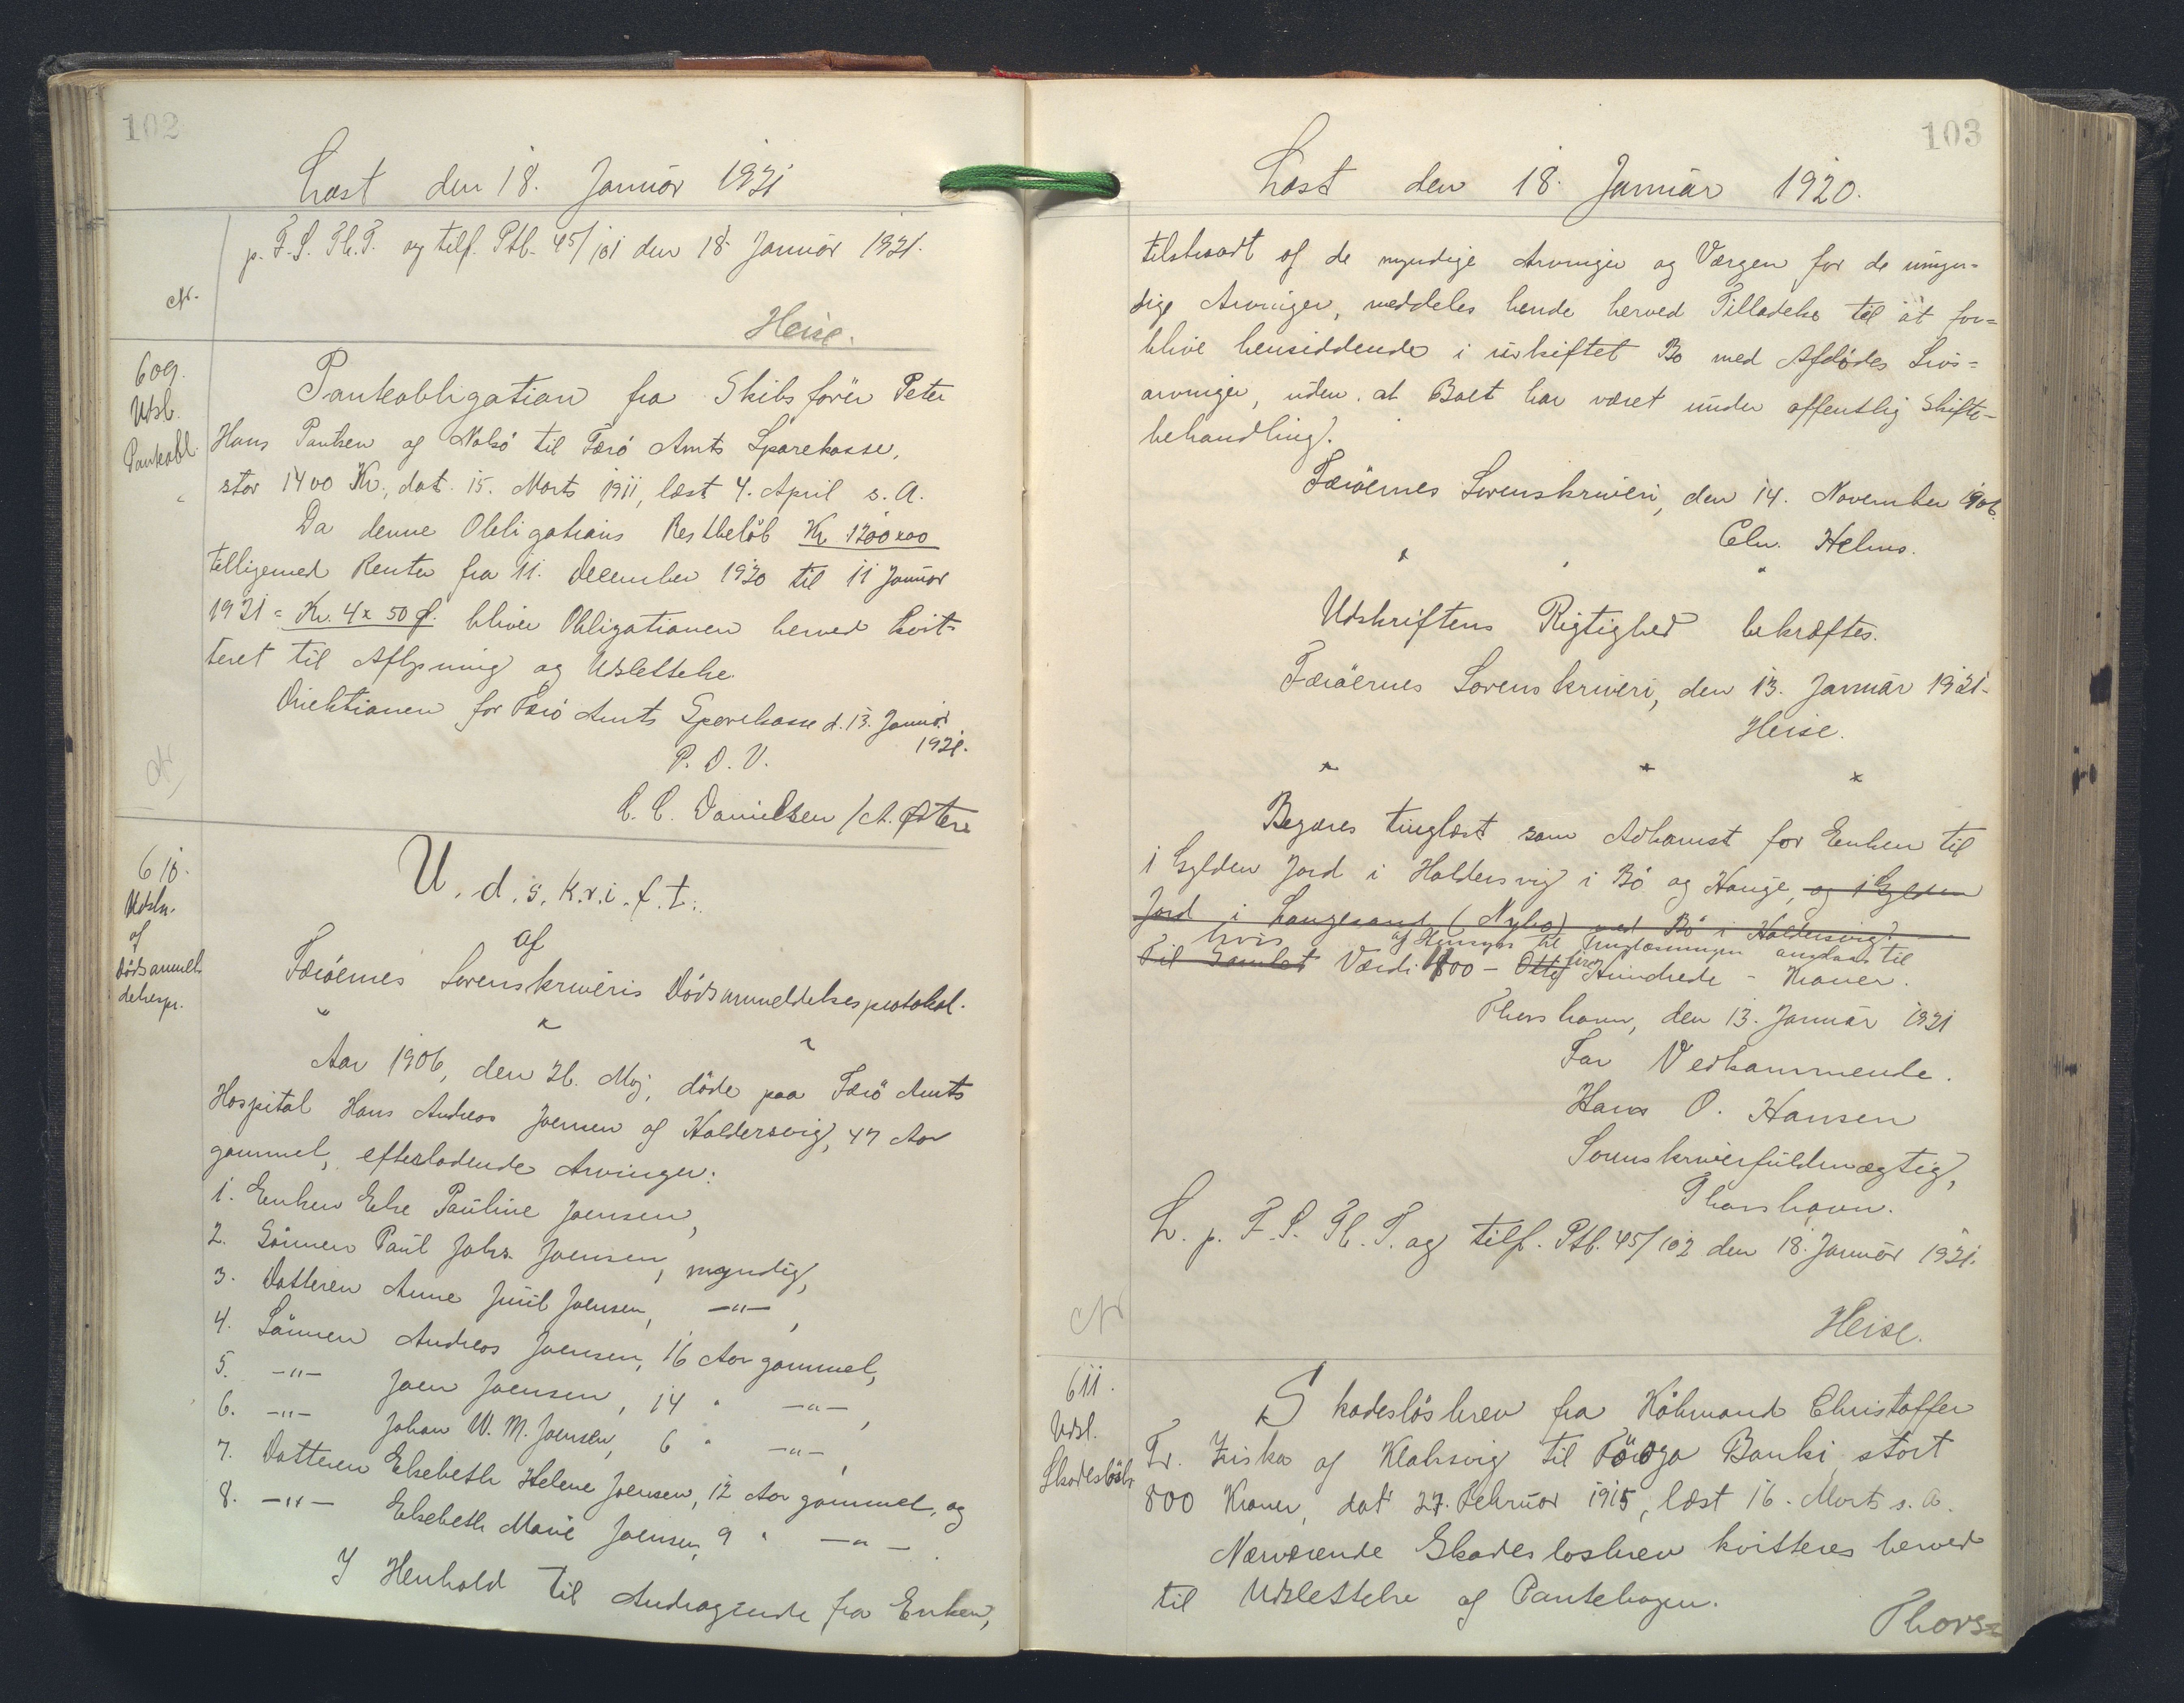 102
Læst den 18. Januar 1921
p. F. S. Th. T. og tilf. Ptb. 45/101 den 18 Januar 1921.
Heise.
609.
Udsl.
Panteobl.
Panteobligation fra Skibsfører Peter
Hans Poulsen af Nolsø til Færø Amts Sparekasse,
stor 1400 Kr., dat. 15. Marts 1911, læst 4. April s. A.
Da denne Obligations Restbeløb Kr 1200x00
tilligemed Renter fra 11. December 1920 til 11 Januar
1921 = Kr. 4x50 Ø. bliver Obligationen herved kvit-
teret til Aflysning og Udslettelse.
Direktionen for Færø Amts Sparekasse d. 13. Januar
1921.
P. D. V.
C. C. Danielsen / A. Østerø
610.
Udskr.
af
Dødsanmel-
delsespr.
U.d.s.k.r.i.f.t.
af
Færøernes Sorenskriveris Dødsanmeldelsesprotokol.
Aar 1906, den 26. Maj, døde paa Færø Amts
Hospital Hans Andreas Joensen af Haldersvig, 47 Aar
gammel, efterladende Arvinger:
1. Enken Else Pauline Joensen,
2. Sønnen Paul Johs. Joensen, myndig,
3. Datteren Anne Juul Joensen, -"-,
4. Sønnen Andreas Joensen, 16 Aar gammel,
5. -"- Joen Joensen, 14 " -"-,
6. -"- Johan W. M. Joensen, 6 " -"-,
7. Datteren Elsebeth Helene Joensen, 12 Aar gammel, og
8. -"- Elsebeth Marie Joensen, 9 " -"-.
I Henhold til Andragende fra Enken,
103
Læst den 18. Januar 1920.
tiltraadt af de myndige Arvinger og Værgen for de umyn-
dige Arvinger, meddeles hende herved Tilladelse til at for-
blive hensiddende i uskiftet Bo med Afdødes Livs-
arvinger, uden at Boet har været under offentlig Skifte-
behandling.
Færøernes Sorenskriveri, den 14. November 1906.
Chr. Helms.
Udskriftens Rigtighed bekræftes.
Færøernes Sorenskriveri, den 13. Januar 1921.
Heise.
Begæres tinglæst som Adkomst for Enken til
1 Gylden Jord i Haldersvig i Bø og Hauge, og 1 Gylden
Jord i Langesand (Nybø) med Bø i Haldersvig.
hvis af Hensyn til Tinglæsningen ansættes til
Til samlet Værdi 400 - Otte fire Hundrede - Kroner.
Thorshavn, den 13. Januar 1921
For Vedkommende.
Hans O. Hansen
Sorenskriverfuldmægtig,
Thorshavn.
L. p. F. S. Th. T. og tilf. Ptb. 45/102 den 18. Januar 1921.
Heise.
611.
Udsl.
Skadesløsbr
Skadesløsbrev fra Købmand Christoffer
Fr. Ziska af Klaksvig til Føroya Banki stort
800 Kroner, dat 27. Februar 1915, læst 16. Marts s. A.
Nærværende Skadesløsbrev kvitteres herved
til Udslettelse af Pantebogen.
Thors=